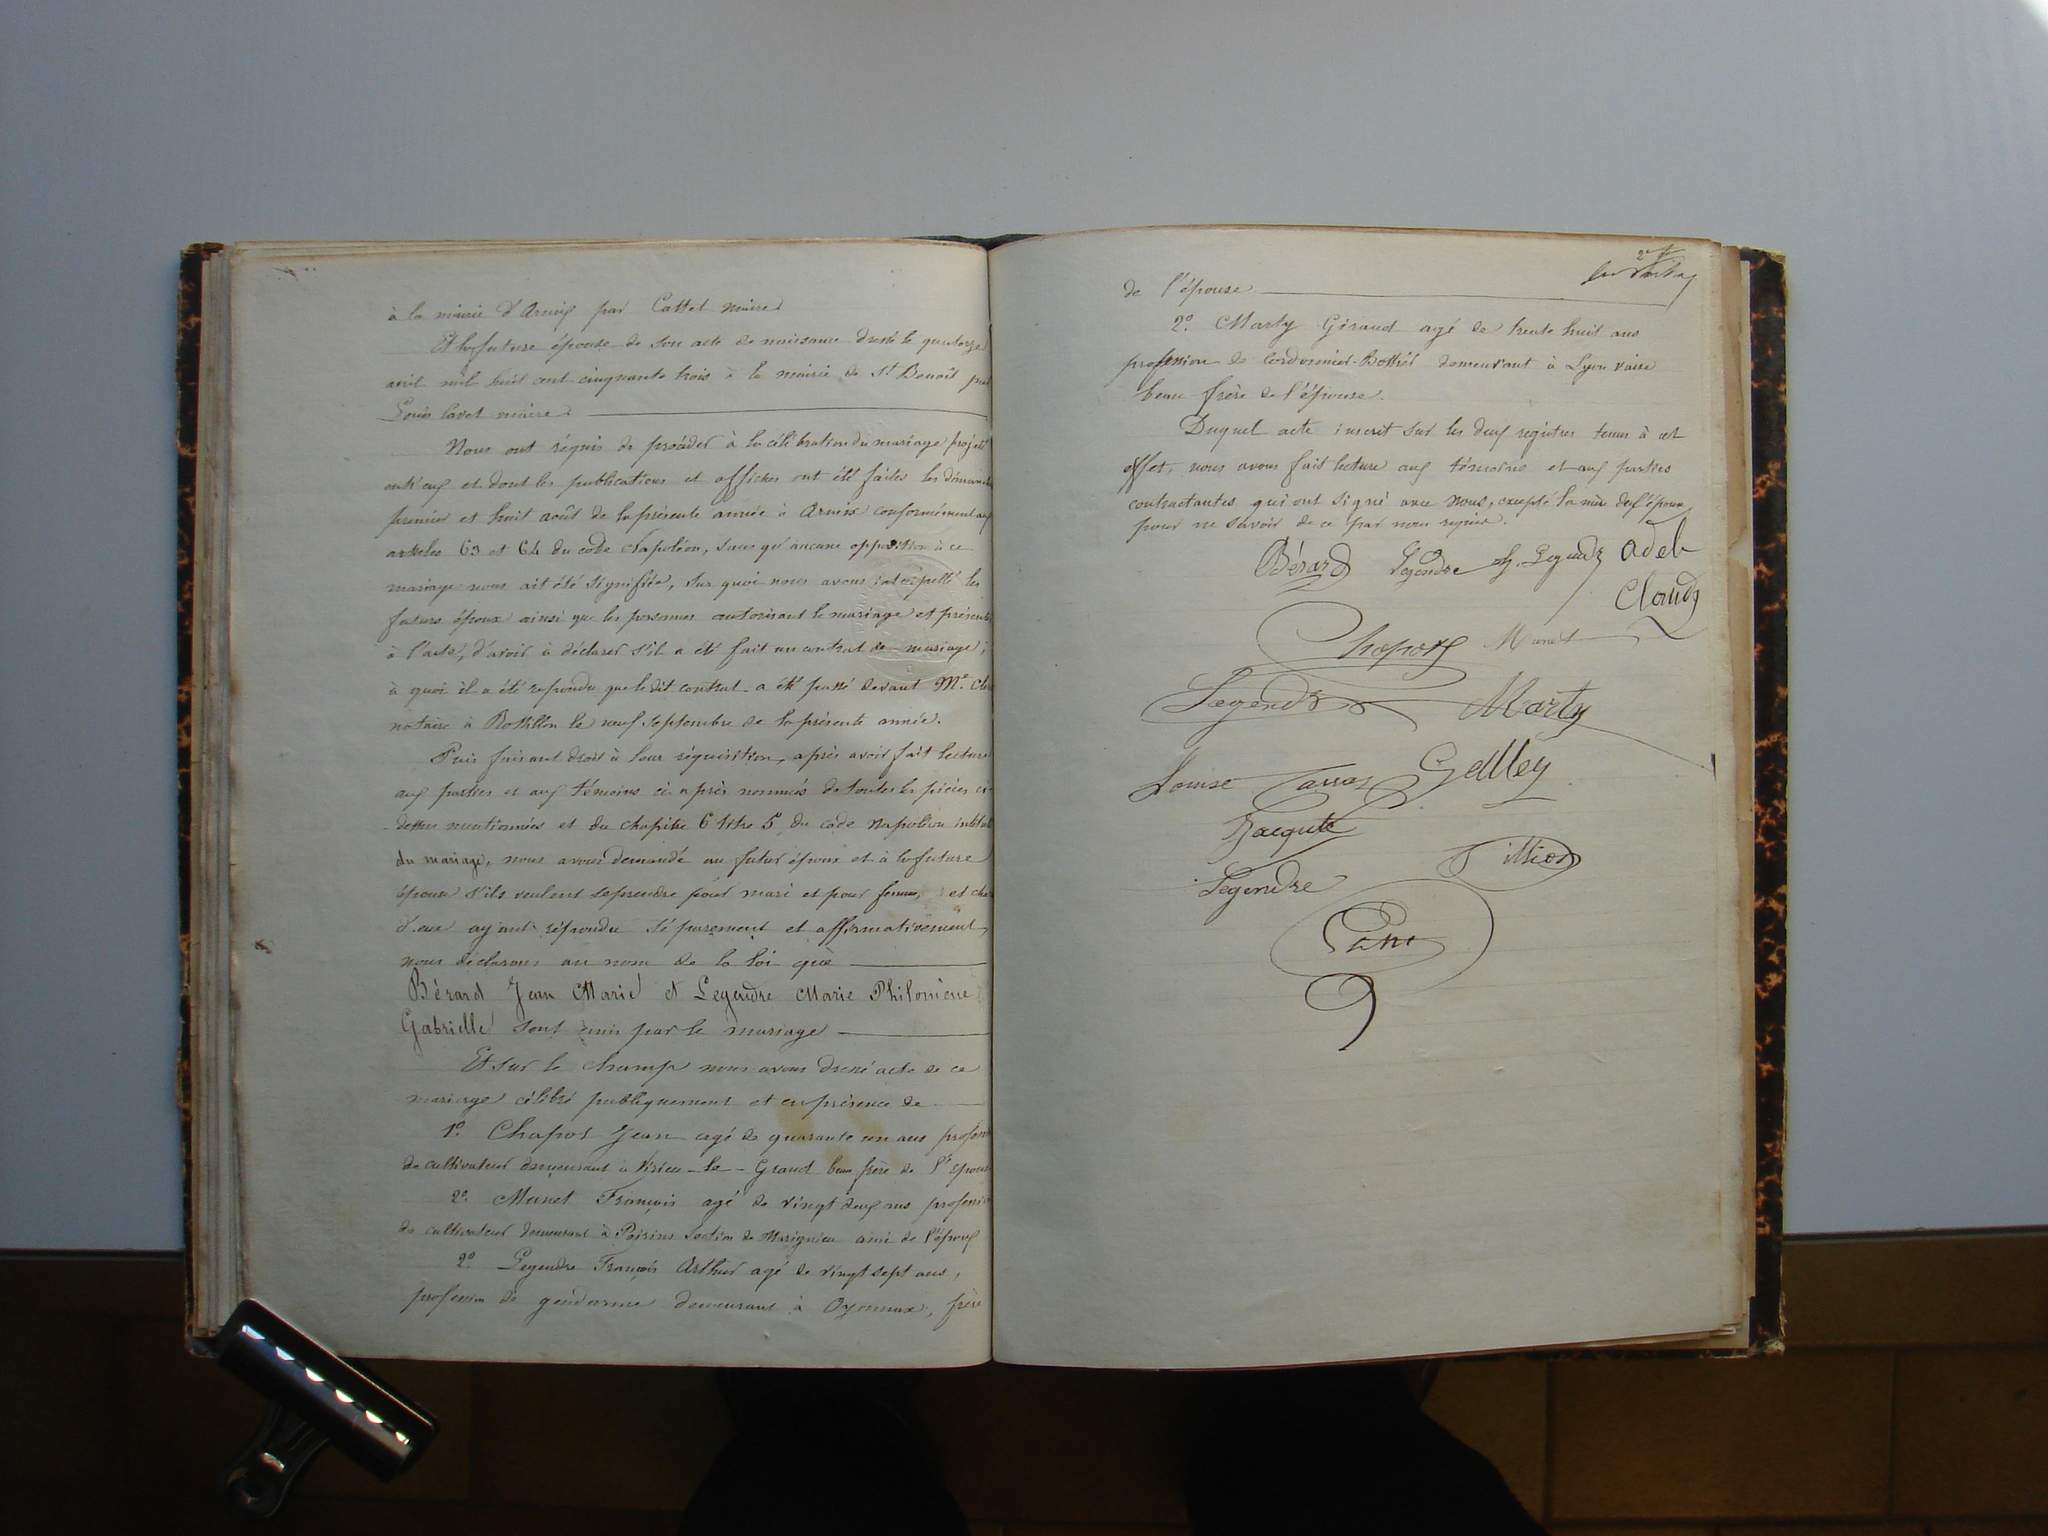 à la mairie d'Aruix par Cattet maire
Et la future épouse de son acte de naissance dressé le quatorze
avril mil huit cent cinquante trois à la mairie de St Benoît par
Louis Cavet maire.
Nous ont réquis de procéder à la célébration du mariage projeté
entr'eux et dont les publications et affiches ont été faites les dimanches
premier et huit août de la présente année à Arvix conformément aux
articles 63 et 64 du code Napoléon, sans qu'aucune opposition à ce
mariage nous ait été signifiée, sur quoi nous avons interpellé les
futurs époux ainsi que les personnes autorisant le mariage et présentes
à l'acte, d'avoir à déclarer s'il a été fait un contrat de mariage;
à quoi il a été repondu que ledit contrat a été passé devant Me.
notaire à Rossillon le neuf Septembre de la présente année.
Puis faisant droit à leur réquisition, après avoir fait lecture
aux parties et aux témoins ci après nommés de toutes les pièces ci
-dessus mentionnées et du chapitre 6 titre 5 du code Napoléon intitulé
du mariage, nous avons demandé au futur époux et à la future
épouse s'ils veulent se prendre pour mari et pour femme, et
d'eux ayant répondu séparement et affirmativement,
nous déclarons au nom de la loi que
Bérard Jean Marie et Legendre Marie Philomène
Gabrielle sont unis par le mariage
Et sur le champ nous avons dressé acte de ce
mariage célébré publiquement et en présence de
1o. Chapot Jean agé de quarante un ans profession
de cultivateur demeurant à Virieu-le-Grand beau frère de l'époux
2o. Munet François agé de vingt deux ans profession
de cultivateur demeurant à Poirin section de Marignieu ami de l'époux
2o Legendre François Arthur agé de vingt sept ans,
profession de gendarme demeurant à Oyonnax, frère
de l'épouse
2o. Marty Géraud agé de trente huit ans
profession de cordonnier-Bottier demeurant à Lyon vaise
beau frère de l'épouse.
Duquel acte inscrit sur les deux registres tenus à cet
effet, nous avons fait lecture aux témoins et aux parties
contractantes qui ont signé avec nous, excepté la mère de l'époux
pour ne savoir de ce par nous requise.
Bérard Legendre Legendre Adel
Claudy
Chapot Munet
Legendre Marty
Louise Carraz Gelley
Jacquete
Legendre